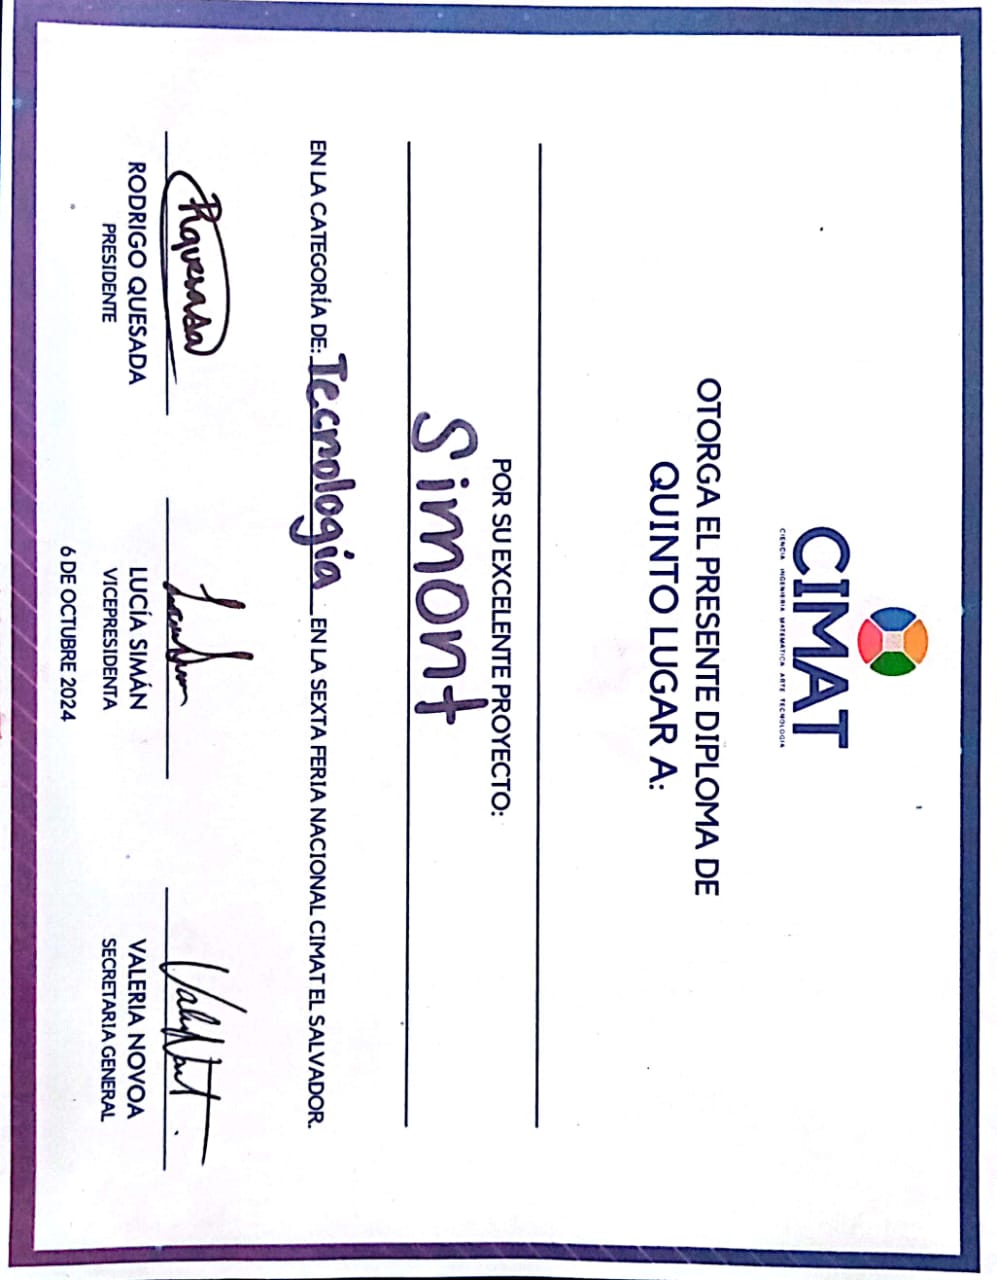 CIMAT
CIENCIA INGENIERIA MATEMATICA ARTE TECNOLOGIA
OTORGA EL PRESENTE DIPLOMA DE
QUINTO LUGAR A:
POR SU EXCELENTE PROYECTO:
Simont
EN LA CATEGORÍA DE: Tecnología EN LA SEXTA FERIA NACIONAL CIMAT EL SALVADOR.
RQuesada
RODRIGO QUESADA LUCÍA SIMÁN VALERIA NOVOA
PRESIDENTE VICEPRESIDENTA SECRETARIA GENERAL
6 DE OCTUBRE 2024